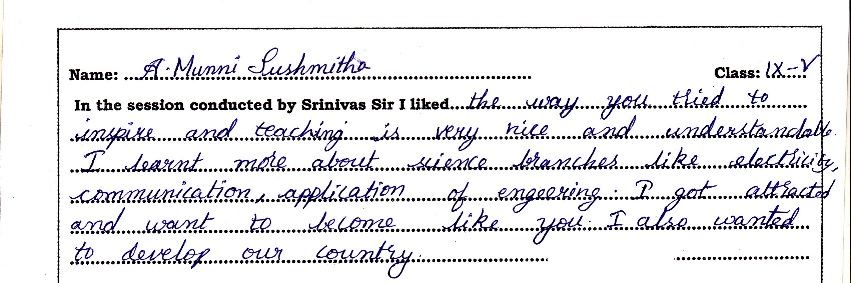 Name: A. Munni Sushmitha Class: IX-V
In the session conducted by Srinivas Sir I liked the way you tried to
inspire and teaching is very nice and understandable.
I learnt more about science branches like electricity,
communication, application of engeering. I got attracted
and want to become like you. I also wanted
to develop our country.